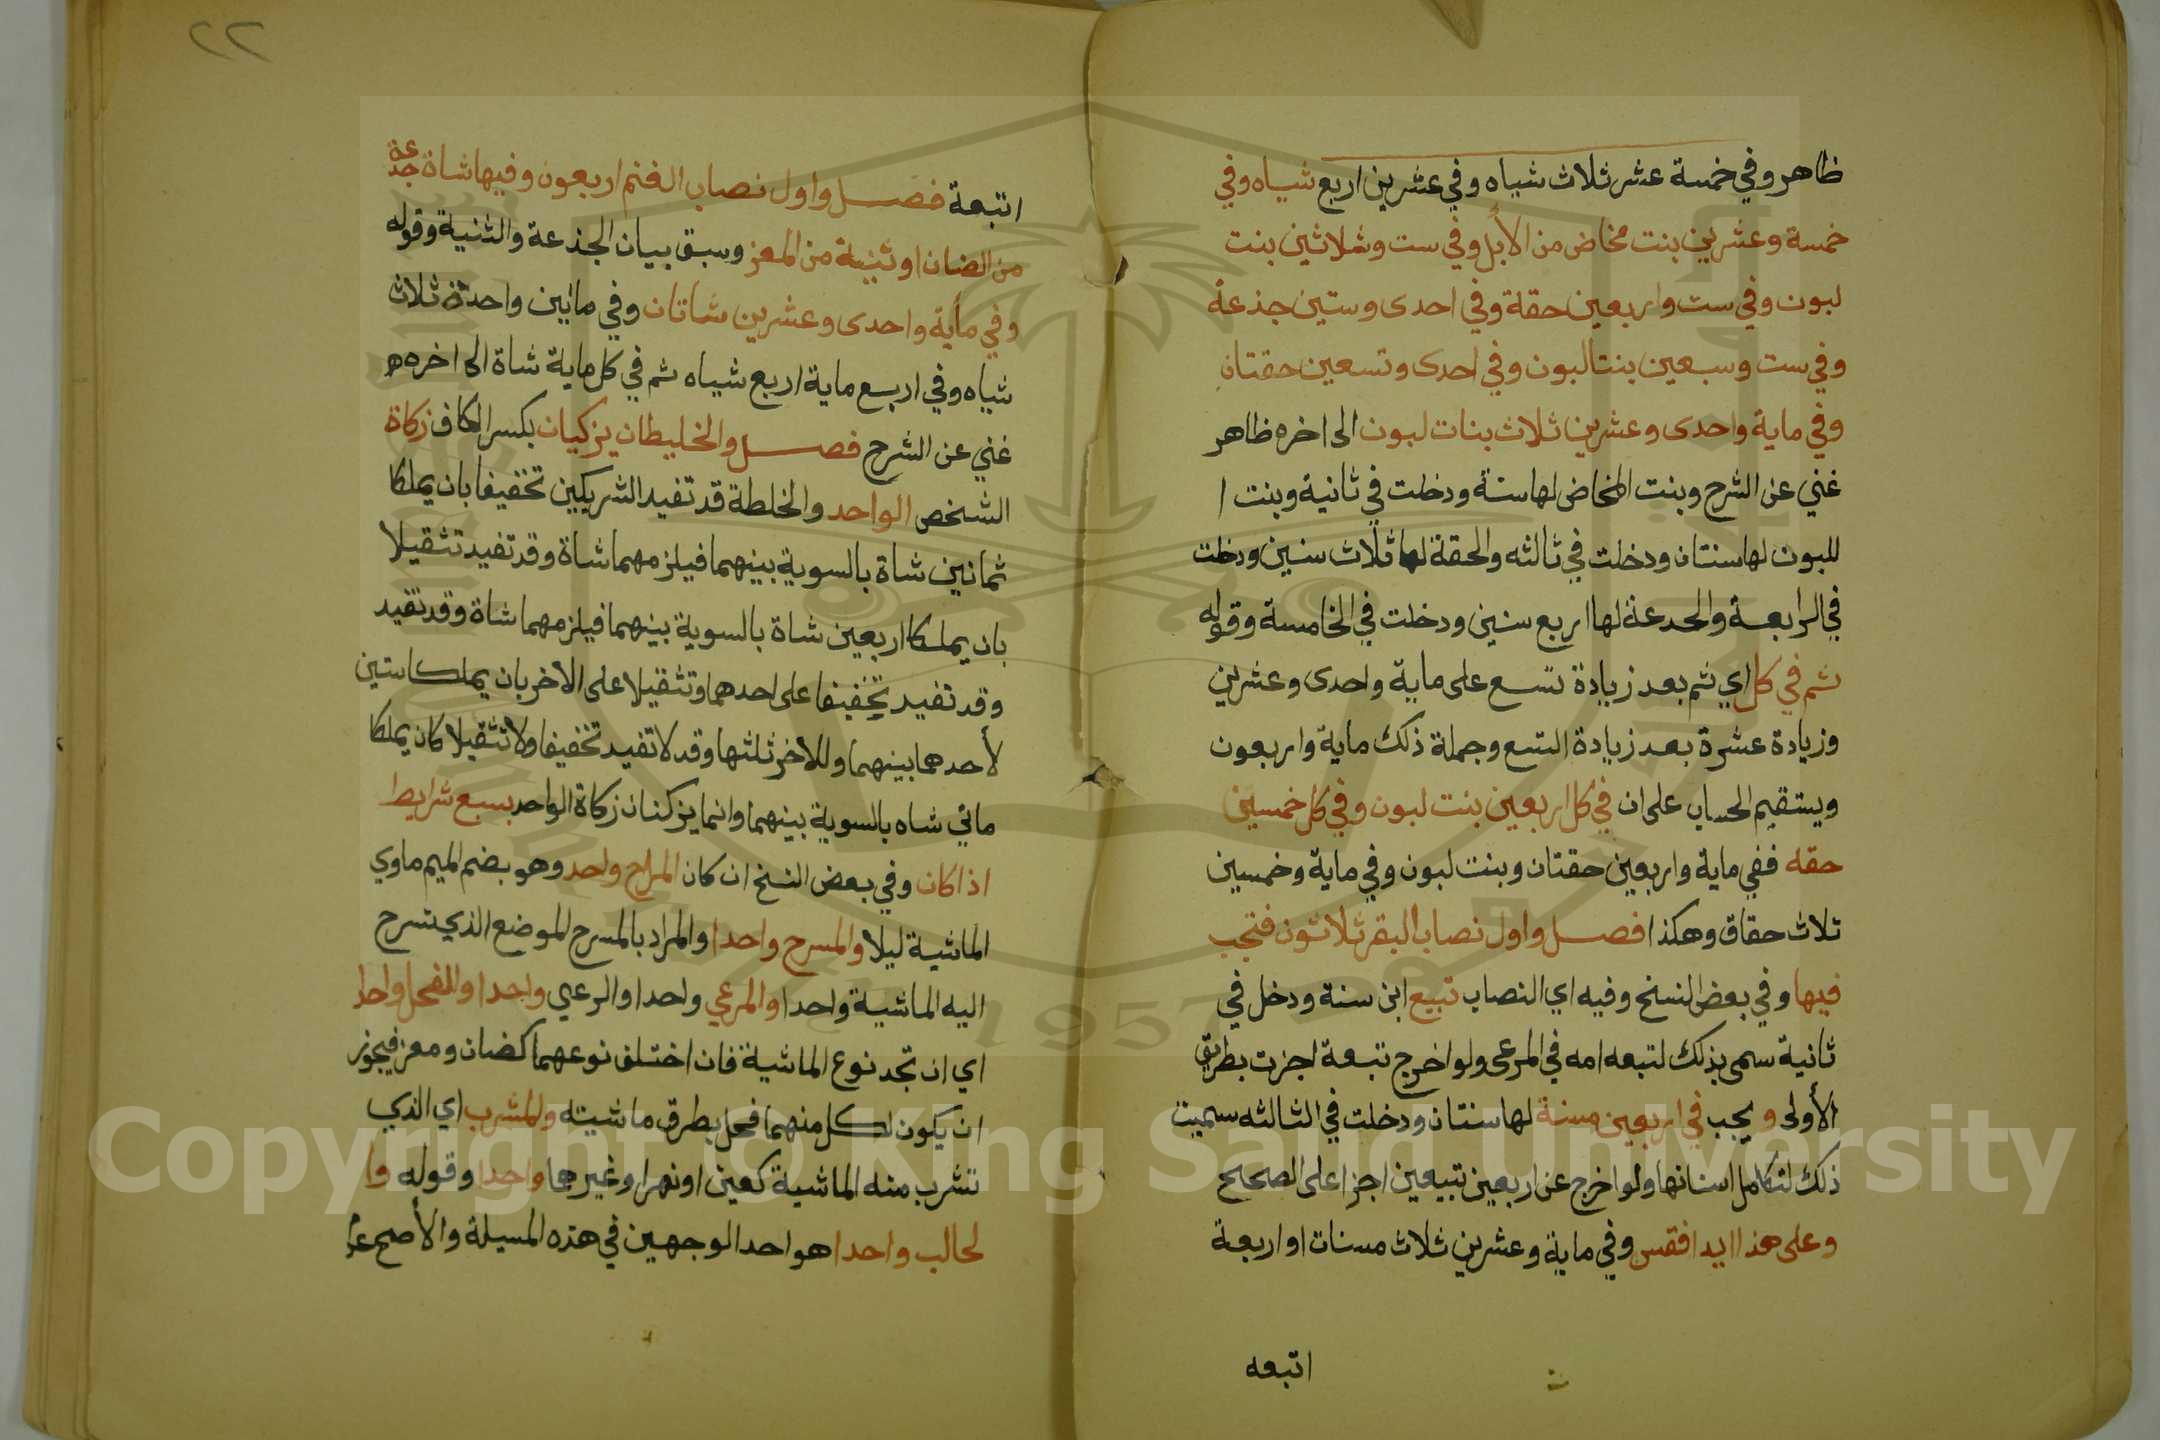 ظاهر وفي خمسة عشر ثلاث شياه وفي عشرين اربع شياه وفي
خمسة وعشرين بنت مخاض من الأبل وفي ست وثلاثين بنت
لبون وفي ست واربعين حقة وفي احدى وستين جذعة
وفي ست وسبعين بنتا لبون وفي احدى وتسعين حقتان
وفي ماية واحدى وعشرين ثلاث بنات لبون الى اخره ظاهر
غني عن الشرح وبنت المخاض لها سنة ودخلت في ثانية وبنت ا
للبون لها سنتان ودخلت في ثالثه والحقة لها ثلاث سنين ودخلت
في الرابعة والجدعة لها اربع سنين ودخلت في الخامسة وقوله
ثم في كل اي ثم بعد زيادة تسع على ماية واحدى وعشرين
وزيادة عشرة بعد زيادة التسع وجملة ذلك ماية واربعون
ويستقيم الحساب على ان في كل اربعين بنت لبون وفي كل خمسين
حقه ففي ماية واربعين حقتان وبنت لبون وفي ماية وخمسين
ثلاث حقاق وهكذا فصل واول نصاب البقر ثلاثون فتجب
فيها وفي بعض النسخ وفيه اي النصاب تبيع ابن سنة ودخل في
ثانية سمى بذلك لتبعه امه في المرعى ولو اخرج تبعة اجزت بطريق
الأولى و يجب في اربعين مسنة لها سنتان ودخلت في الثالثه سميت
ذلك لتكامل اسنانها ولو اخرج عن اربعين تبيعين اجزا على الصحيح
وعلى هذا ابدا فقس وفي ماية وعشرين ثلاث مسنات او اربعة
اتبعه
٢٢
اتبعة فصل واول نصاب الغنم اربعون وفيها شاة جذعة
من الضان او ثنية من المعز وسبق بيان الجذعة والثنية وقوله
وفي مأية واحدى وعشرين شاتان وفي مايتين واحدة ثلاث
شياه وفي اربع ماية اربع شياه ثم في كل ماية شاة الى اخره
غني عن الشرح فصل والخليطان يزكيان بكسر الكاف زكاة
الشخص الواحد والخلطة قد تفيد الشريكين تخفيفا بان يملكا
ثمانين شاة بالسوية بينهما فيلزمهما شاة وقد تفيد تثقيلا
بان يملكا اربعين شاة بالسوية بينهما فيلزمهما شاة وقد تفيد
وقد تفيد تخفيفا على احدهما وتثقيلا على الاخر بان يملكا ستين
لأحدهما بينهما وللاخر ثلثها وقد لا تفيد تخفيفا ولا تثقيلا كان يملكا
مائي شاه بالسوية بينهما وانما يزكنان زكاة الواحد بسبع شرايط
اذا كان وفي بعض النسخ ان كان المراح واحد وهو بضم الميم ماوي
الماشية ليلا والمسرح واحدا والمراد بالمسرح الموضع الذي تسرح
اليه الماشية واحدا والمرعي واحدا والرعي واحدا والفحل واحد
اي ان تجد نوع الماشية فان اختلف نوعهما كضان ومعز فيجوز
ان يكون لكل منهما فحل يطرق ماشيته والمشرب اي الذي
تشرب منه الماشية كعين او نهر او غيرها واحدا وقوله وا
لحالب واحدا هو احد الوجهين في هذه المسيلة والأصح عدم
Copyright © King Saud University
1957